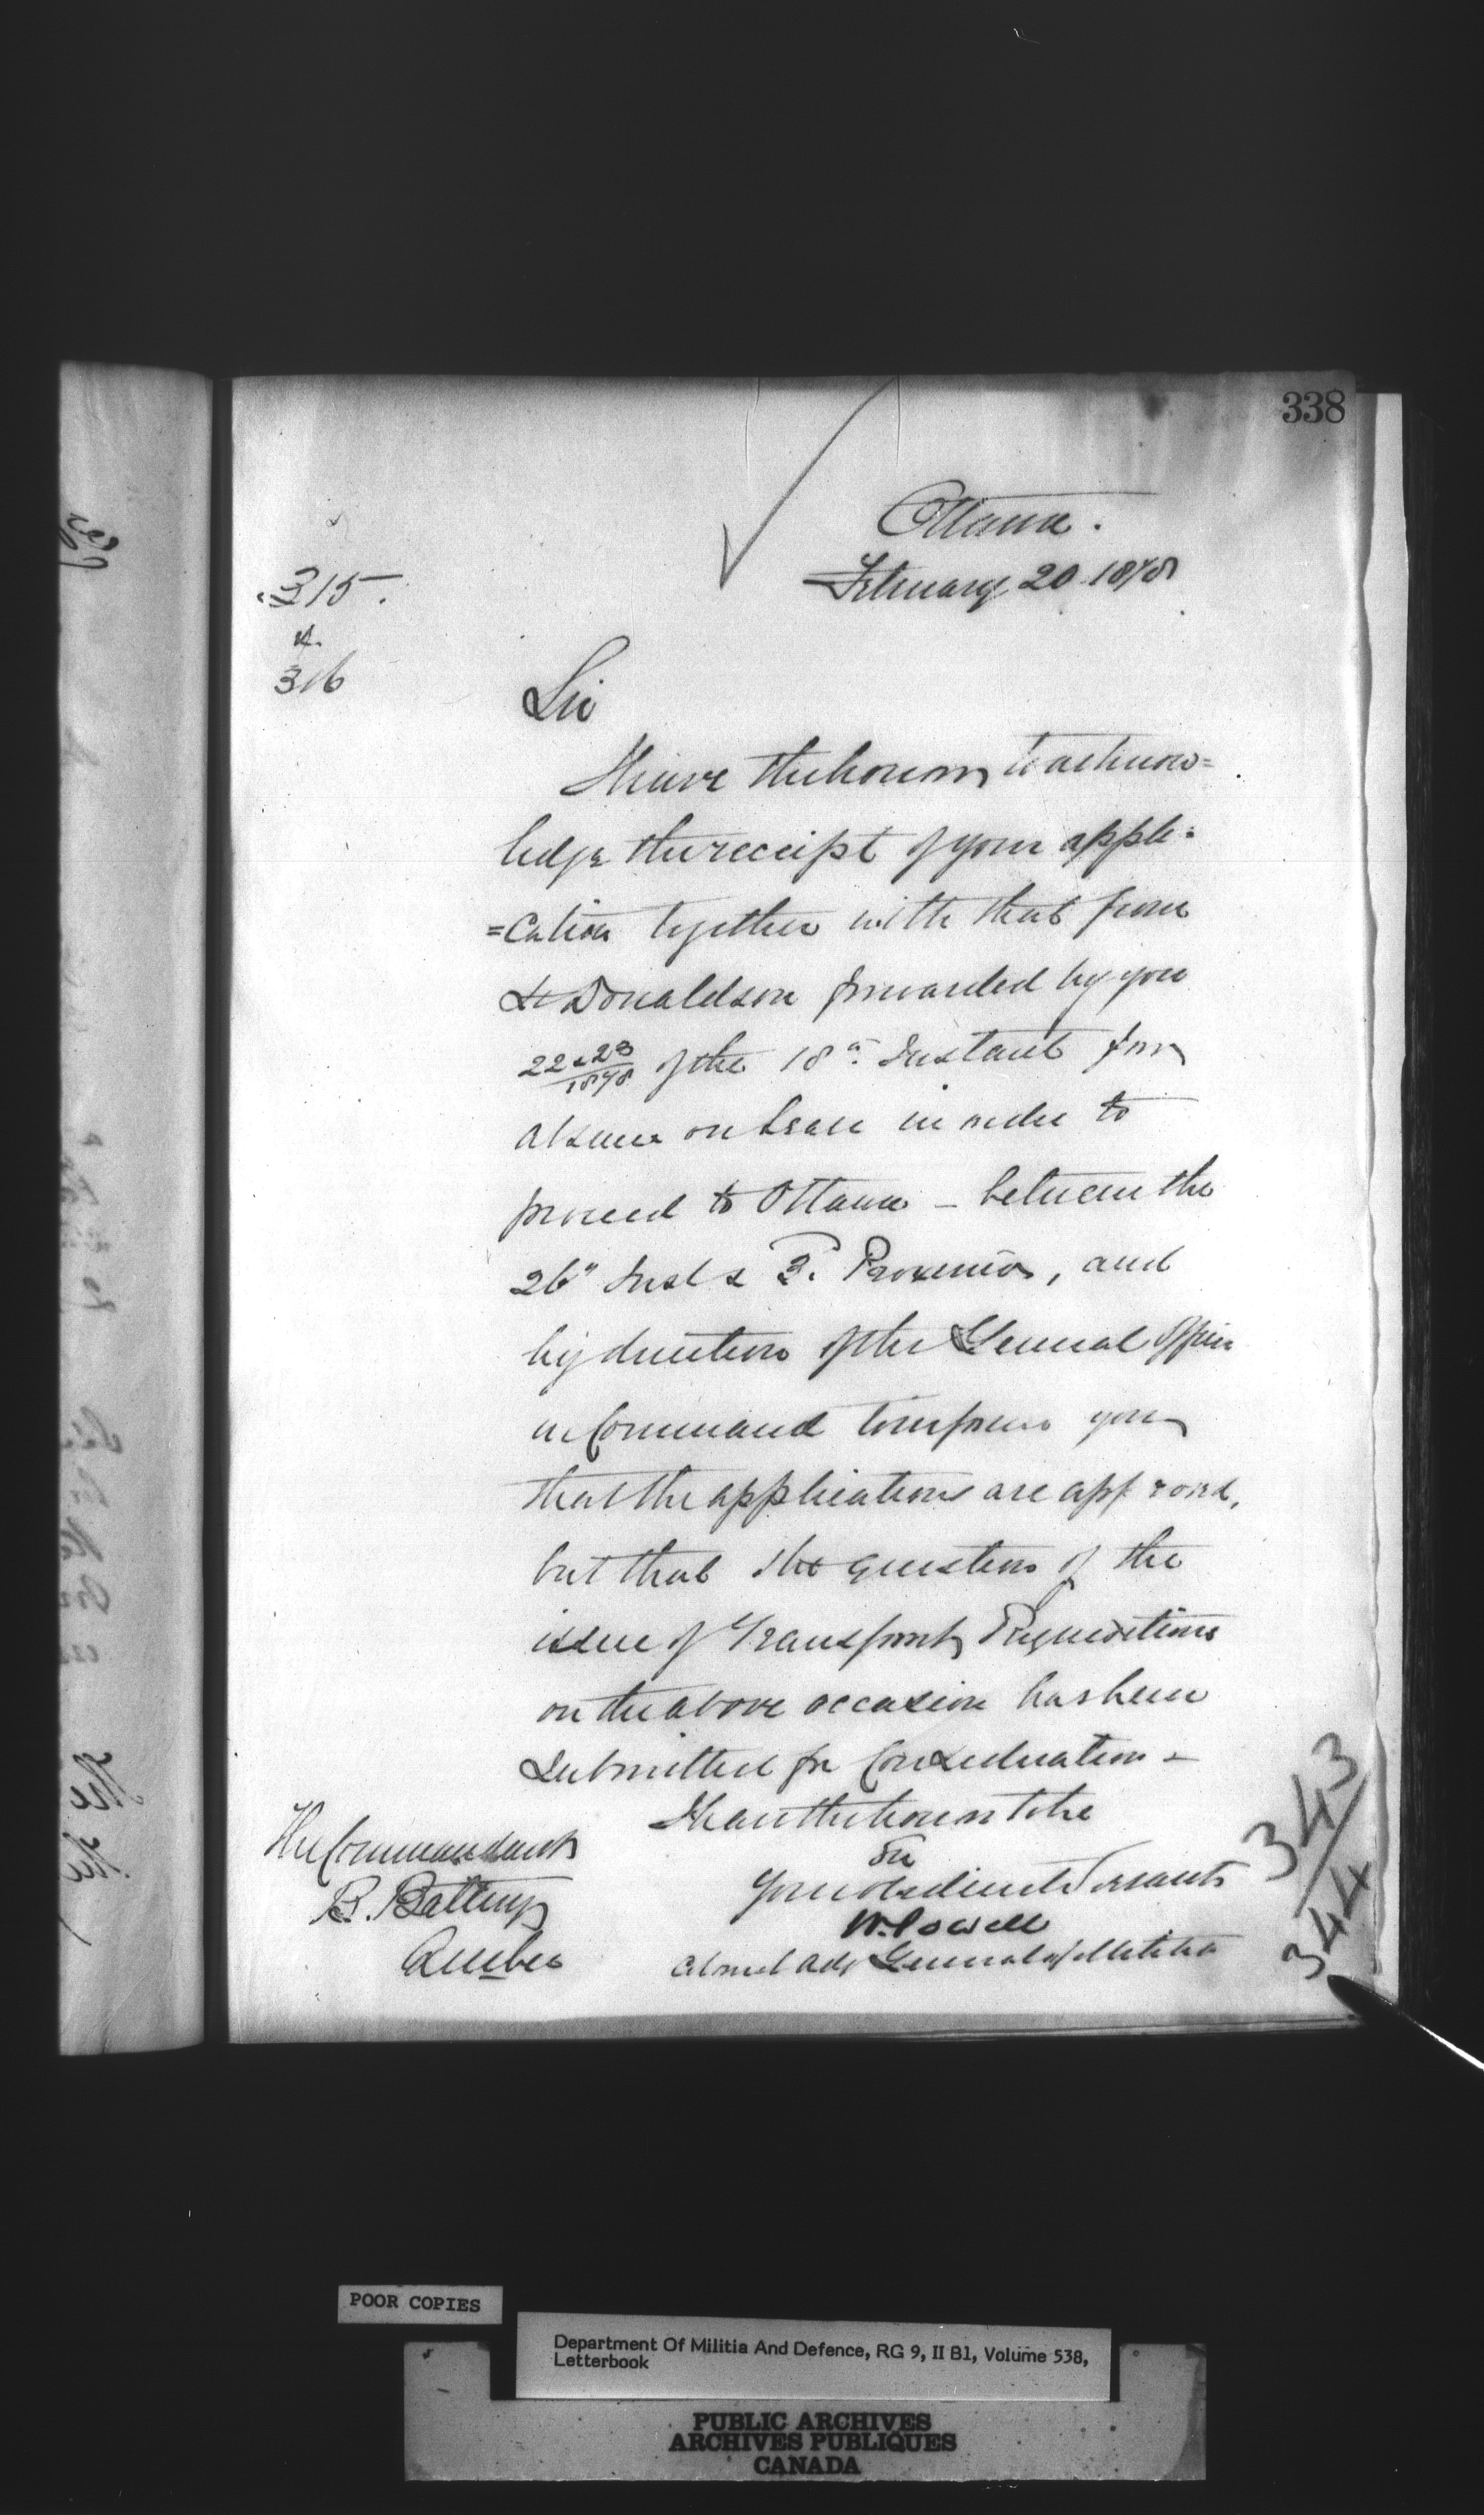 338
Ottawa.
February 20 1878
315.
&
316
Sir
I have the honour to acknow=
ledge the receipt of your appli=
=cation together with that from
Lt Donaldson forwarded by you
22 & 23 / 1878 of the 18th Instant for
absence on leave in order to
proceed to Ottawa - between the
26" Inst & 3. Proximo, and
by direction of the General Officer
in Command to inform you
that the applications are approved,
but that the question of the
issue of Transport Requisitions
on the above occasion has been
submitted for Consideration -
I have the honour to be
Sir
Your obedient Servant
W. Powell
Colonel Adj General of Militia
The Commandant
B. Battery
Quebec
343
344
POOR COPIES
Department Of Militia And Defence, RG 9, II B1, Volume 538,
Letterbook
PUBLIC ARCHIVES
ARCHIVES PUBLIQUES
CANADA